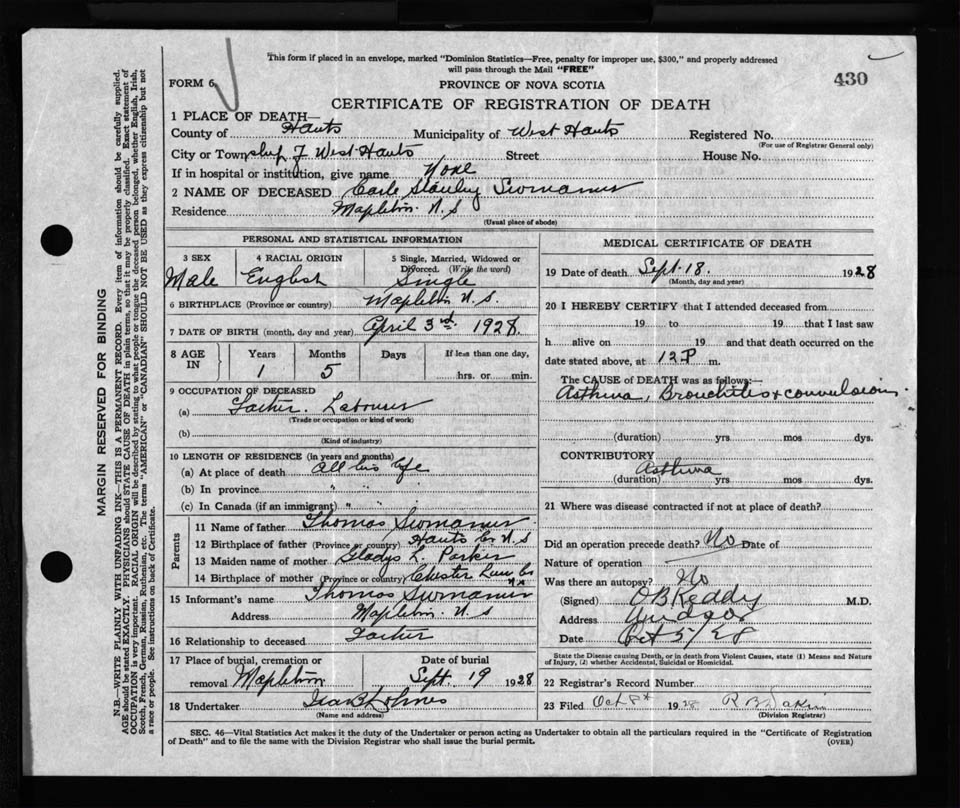 This form if placed in an envelope, marked "Dominion Statistics—Free, penalty for improper use, $300," and properly addressed
will pass through the Mail "FREE"
FORM 6
PROVINCE OF NOVA SCOTIA
430
CERTIFICATE OF REGISTRATION OF DEATH
1 PLACE OF DEATH—
County of Hants Municipality of West Hants Registered No.
(For use of Registrar General only)
City or Township of West Hants Street House No.
If in hospital or institution, give name None
2 NAME OF DECEASED Carle Stanley
Residence Mapleton. N.S
(Usual place of abode)
PERSONAL AND STATISTICAL INFORMATION
3 SEX 4 RACIAL ORIGIN 5 Single, Married, Widowed or
Divorced. (Write the word)
Male English Single
6 BIRTHPLACE (Province or country) Mapleton N.S.
7 DATE OF BIRTH (month, day and year) April 3rd. 1928.
8 AGE IN Years Months Days If less than one day,
1 5 hrs. or min.
9 OCCUPATION OF DECEASED
(a) Father. Labourer
(Trade or occupation or kind of work)
(b)
(Kind of industry)
10 LENGTH OF RESIDENCE (in years and months)
(a) At place of death All his life
(b) In province " "
(c) In Canada (if an immigrant) " "
Parents
11 Name of father Thomas
12 Birthplace of father (Province or country) Hants Co N.S
13 Maiden name of mother Gladys L. Parker
14 Birthplace of mother (Province or country) Chester Lun Co
N.S
15 Informant's name Thomas
Address Mapleton. N.S
16 Relationship to deceased Father
17 Place of burial, cremation or removal Mapleton Date of burial Sept. 19 1928
18 Undertaker
(Name and address)
MEDICAL CERTIFICATE OF DEATH
19 Date of death Sept. 18. 1928
(Month, day and year)
20 I HEREBY CERTIFY that I attended deceased from
19 to 19 that I last saw
h alive on 19 and that death occurred on the
date stated above, at 12 P m.
The CAUSE of DEATH was as follows:—
Asthma, Bronchitis & convulsions.
(duration) yrs mos dys.
CONTRIBUTORY Asthma
(duration) yrs mos dys.
21 Where was disease contracted if not at place of death?
Did an operation precede death? No Date of
Nature of operation
Was there an autopsy? No
(Signed) O B Keddy M.D.
Address
Date Oct 5/28
State the Disease causing Death, or in death from Violent Causes, state (1) Means and Nature
of Injury, (2) whether Accidental, Suicidal or Homicidal.
22 Registrar's Record Number
23 Filed Oct 8th 1928 R B Dakin
(Division Registrar)
SEC. 46—Vital Statistics Act makes it duty of the Undertaker or person acting as Undertaker to obtain all the particulars required in the "Certificate of Registration
of Death" and to file the same with the Division Registrar who shall issue the burial permit.
(OVER)
MARGIN RESERVED FOR BINDING
N.B.—WRITE PLAINLY WITH UNFADING INK—THIS IS A PERMANENT RECORD. Every item of information should be carefully supplied.
AGE should be stated EXACTLY. PHYSICIANS should STATE CAUSE OF DEATH in plain terms, so that it may be properly classified. Exact statement of
OCCUPATION is very important. RACIAL ORIGIN will be described by stating to what people or tongue the deceased person belonged, whether English, Irish,
Scotch, French, German, Russian, Ruthenian, etc. The terms "AMERICAN" or "CANADIAN" SHOULD NOT BE USED as they express citizenship but not
a race or people. See instructions on back of Certificate.